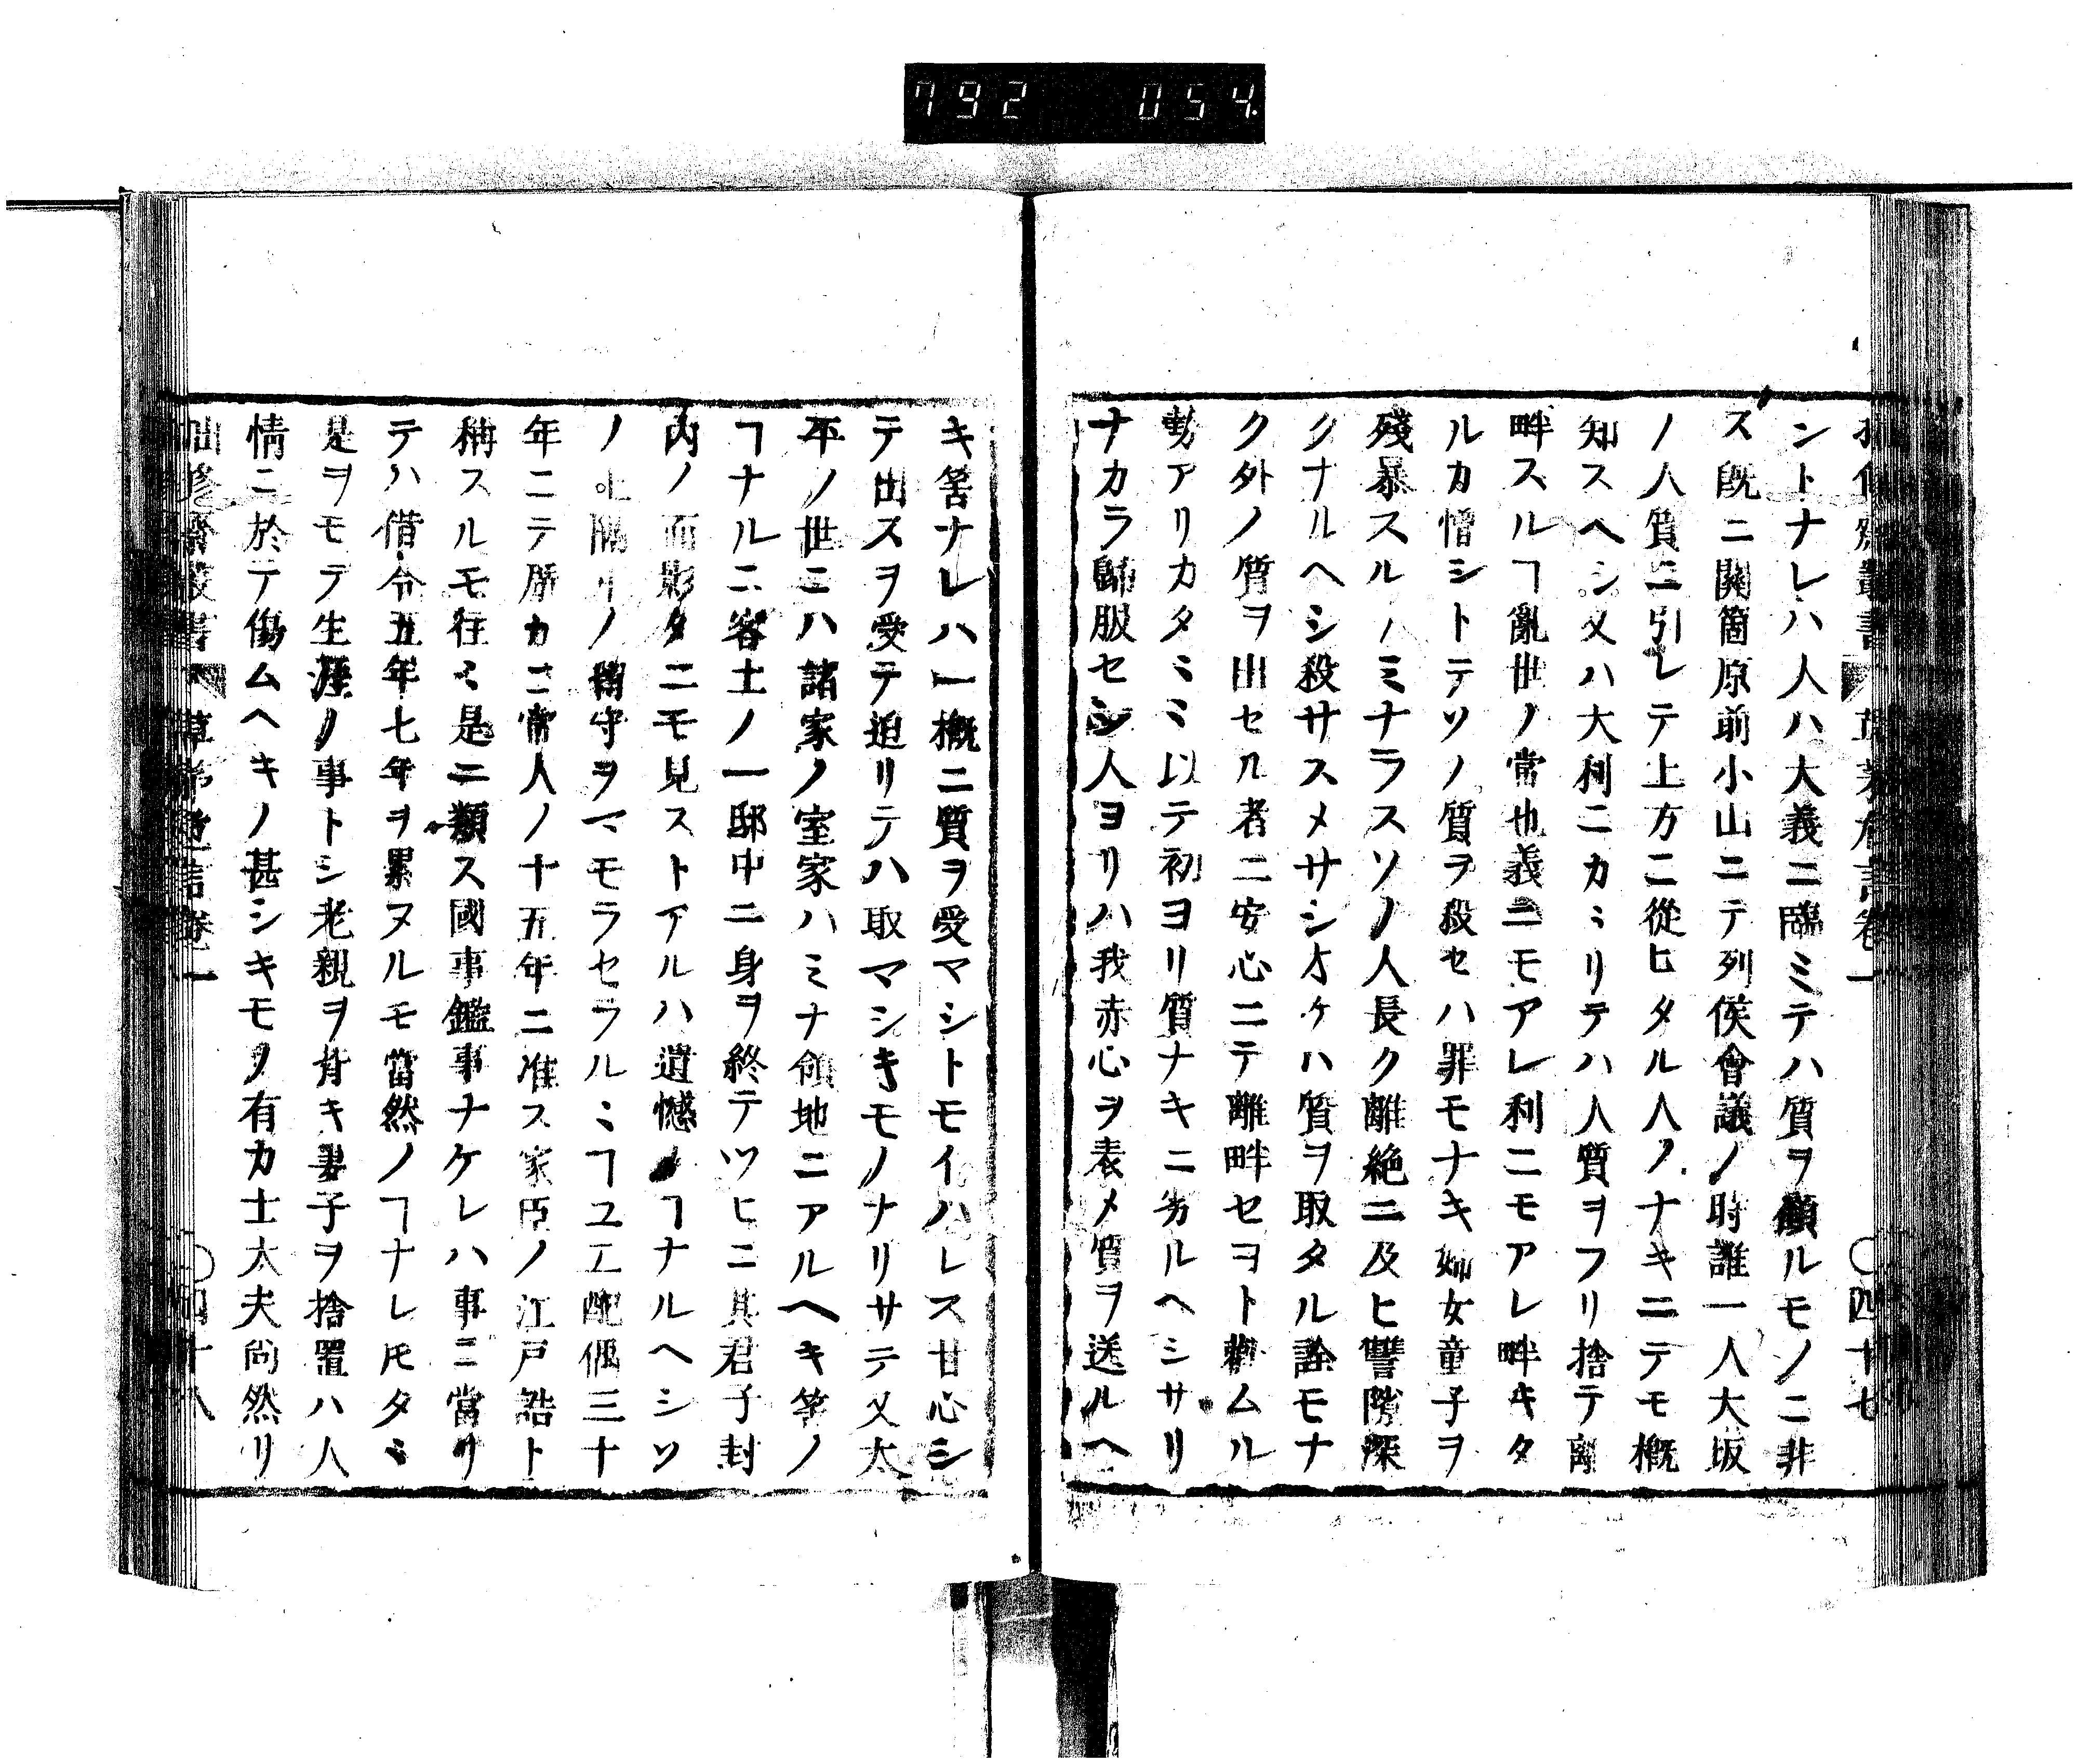 792 054
ントナレハ人ハ大義ニ臨ミテハ質ヲ顧ルモノニ非
ス既ニ関箇原前小山ニテ列侯會議ノ時誰一人大坂
ノ人質ニ引レテ上方ニ從ヒタル人ノナキニテモ概
知スヘシ又ハ大利ニカミリテハ人質ヲフリ捨テ離
畔スルヿ亂世ノ常也義ニモアレ利ニモアレ畔キタ
ルカ憎シトテソノ質ヲ殺セハ罪モナキ婦女童子ヲ
殘暴スルノミナラスソノ人長ク離絶ニ及ヒ讐隙深
クナルヘシ殺サスメサシオケハ質ヲ取タル詮モナ
ク外ノ質ヲ出セル者ニ安心ニテ離畔セヨト勸ムル
動アリカタミミ以テ初ヨリ質ナキニ劣ルヘシサリ
ナカラ歸服セシ人ヨリハ我赤心ヲ表メ質ヲ送ルヘ
〇四十七
キ筈ナレハ一概ニ質ヲ受マシトモイハレス甘心シ
テ出スヲ受テ迫リテハ取マシキモノナリサテ又太
平ノ世ニハ諸家ノ室家ハミナ領地ニアルヘキ筈ノ
ヿナルニ客土ノ一邸中ニ身ヲ終テツヒニ其君子封
内ノ面影タニモ見ストアルハ遺憾ノヿナルヘシソ
ノ上隔年ノ留守ヲマモラセラルミヿユエ配偶三十
年ニテ原カニ常人ノ十五年ニ准ス家臣ノ江戸詰ト
稱スルモ往ミ是ニ類ス國事鑑事ナケレハ事ニ當リ
テハ借令五年七年ヲ累ヌルモ當然ノヿナレ𪜈タミ
是ヲモテ生涯ノ事トシ老親ヲ背キ妻子ヲ捨置ハ人
情ニ於テ傷ムヘキノ甚シキモノ有カ士太夫尚然リ